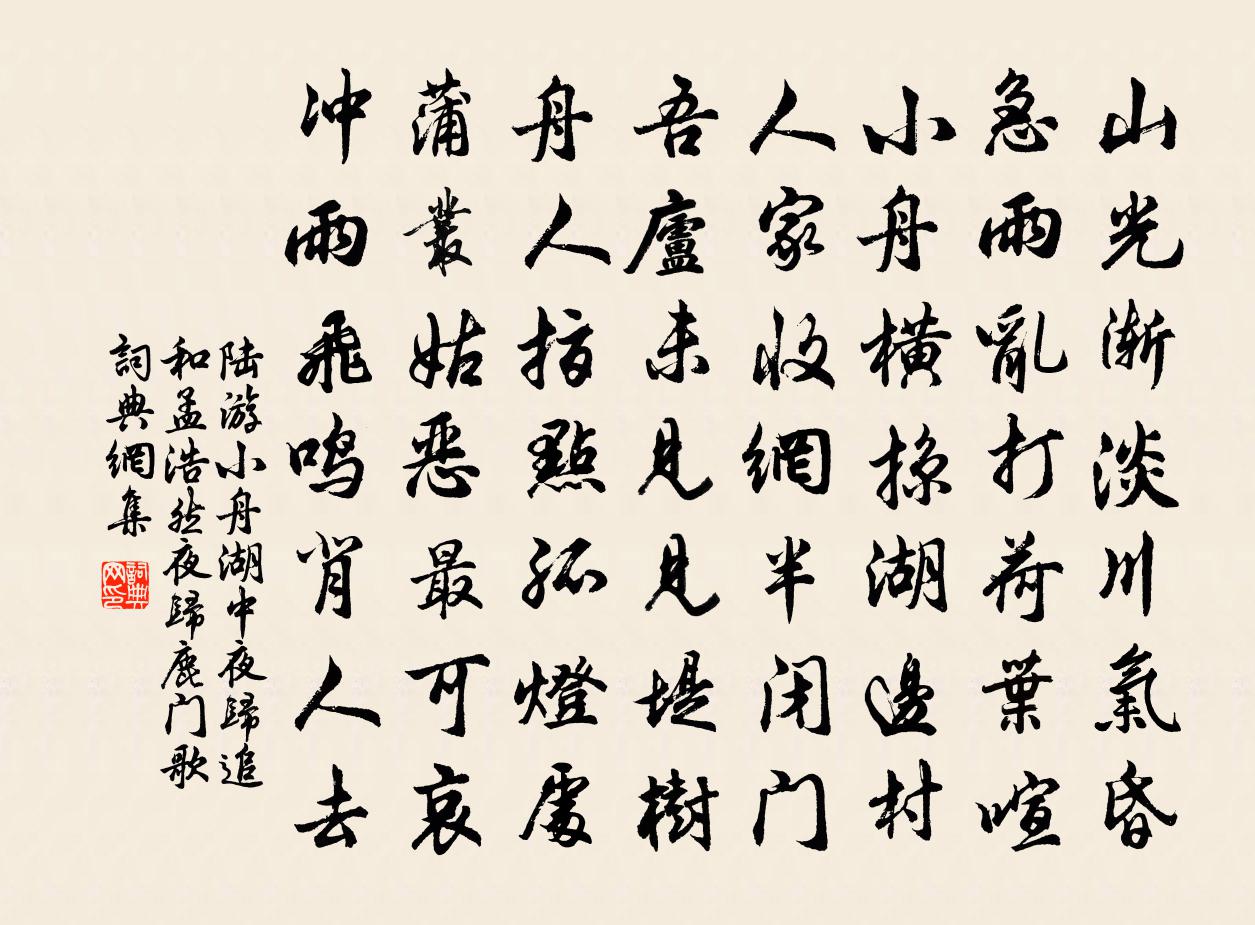 山光渐淡川氣昏
急雨亂打荷葉喧
小舟橫掠湖邊村
人家收網半闭门
吾廬未見見堤樹
舟人指點孤燈處
蒲叢姑恶最可哀
冲雨飛鸣背人去
陆游小舟湖中夜歸追
和孟浩然夜歸鹿门歌
詞典網集
詞典网印